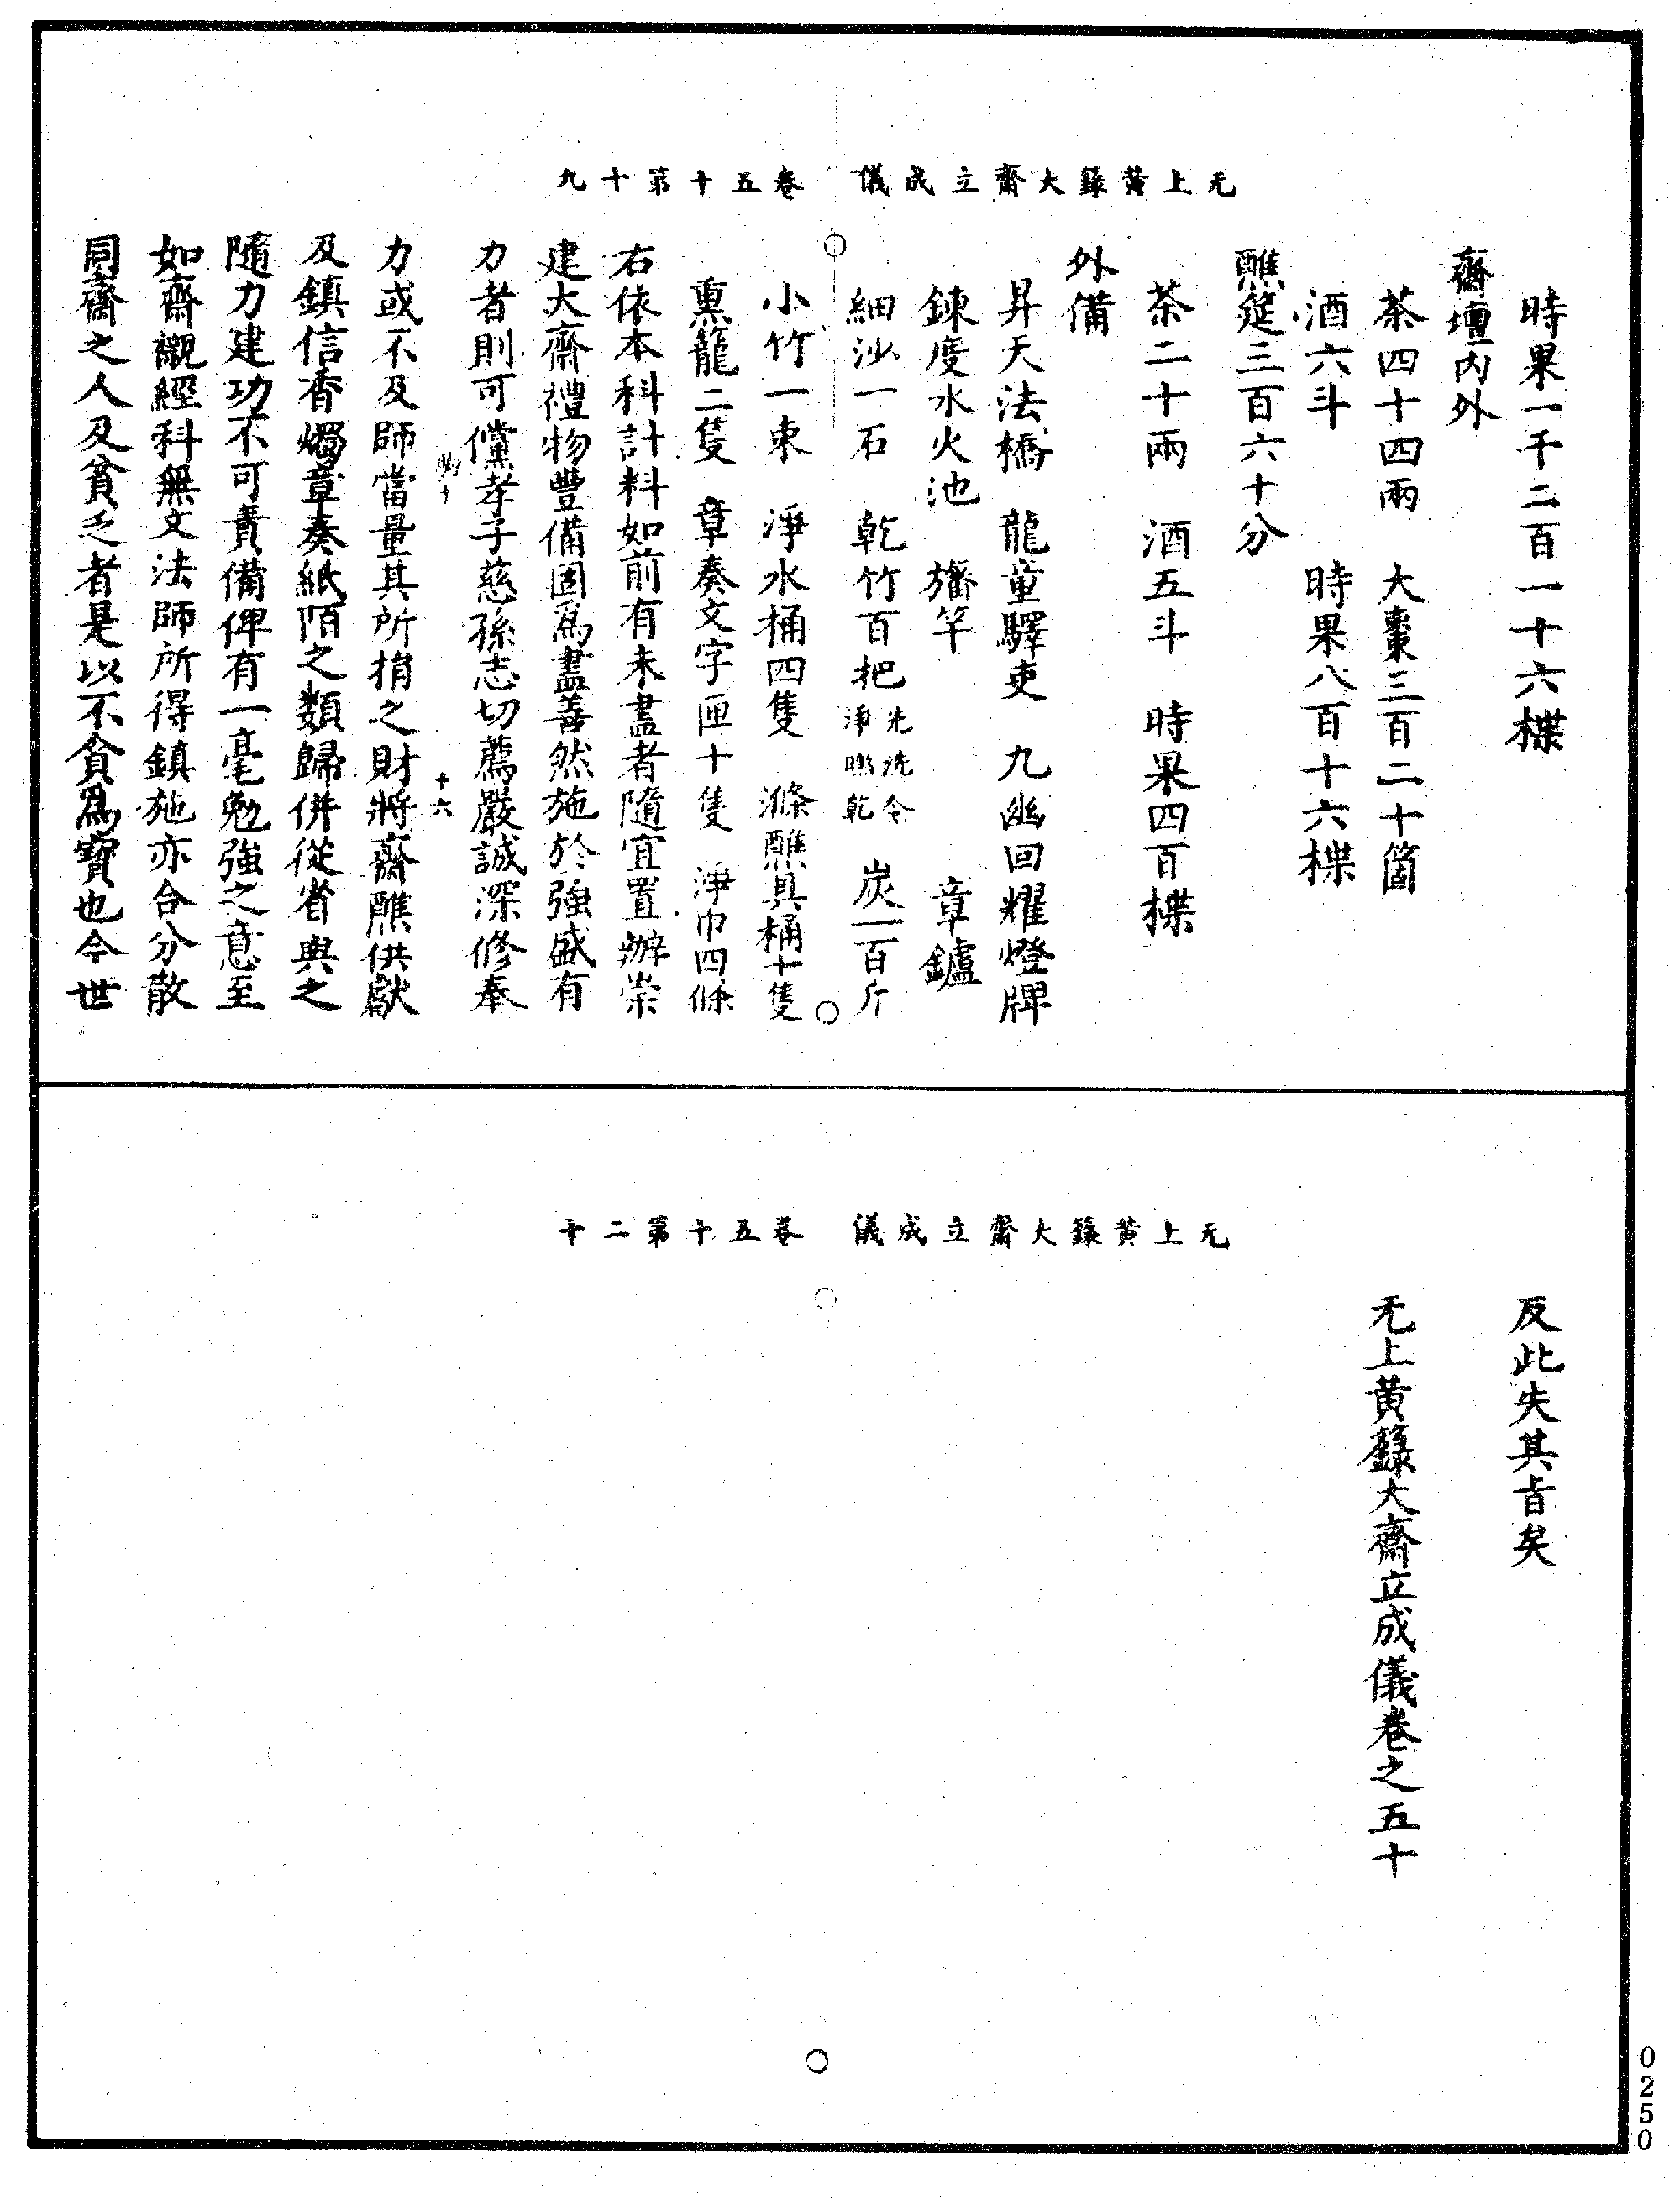 无上黃籙大齋立成儀　卷五十第十九
時果一千二百一十六楪
齋壇內外
茶四十四兩　大棗三百二十箇
酒六斗　時果八百十六楪
醮筵三百六十分
茶二十兩　酒五斗　時果四百楪
外備
昇天法橋　龍童驛吏　九幽回耀燈牌
鍊度水火池　旛竿　章鑪
細沙一石　乾竹百把先洗令淨㬠乾　炭一百斤
小竹一束　淨水桶四隻　滌醮具桶十隻
熏籠二隻　章奏文字匣十隻　淨巾四條
右依本科計料如前有未盡者隨宜置辦崇
建大齋禮物豐備固爲盡善然施於強盛有
力者則可儻孝子慈孫志切薦嚴誠深修奉
十六
力或不及師當量其所捐之財將齋醮供獻
及鎮信香燭章奏紙陌之類歸併從省與之
隨力建功不可責備俾有一毫勉強之意至
如齋儭經科無文法師所得鎮施亦合分散
同齋之人及貧乏者是以不貪爲寶也今世
无上黃籙大齋立成儀　卷五十第二十
反此失其旨矣
无上黃籙大齋立成儀卷之五十
0250